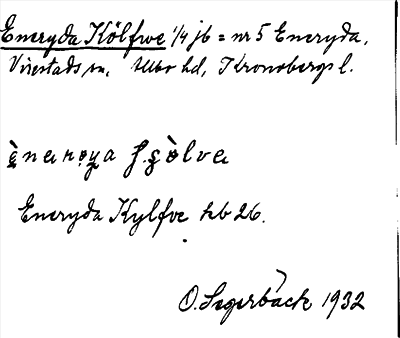 Eneryda Kölfwe 1/4 jb = nr 5 Eneryda,
Virestads sn. Allbo hd, Kronobergs l.
Eneryda Kylfve hb 26.
O. Segerbäck 1932